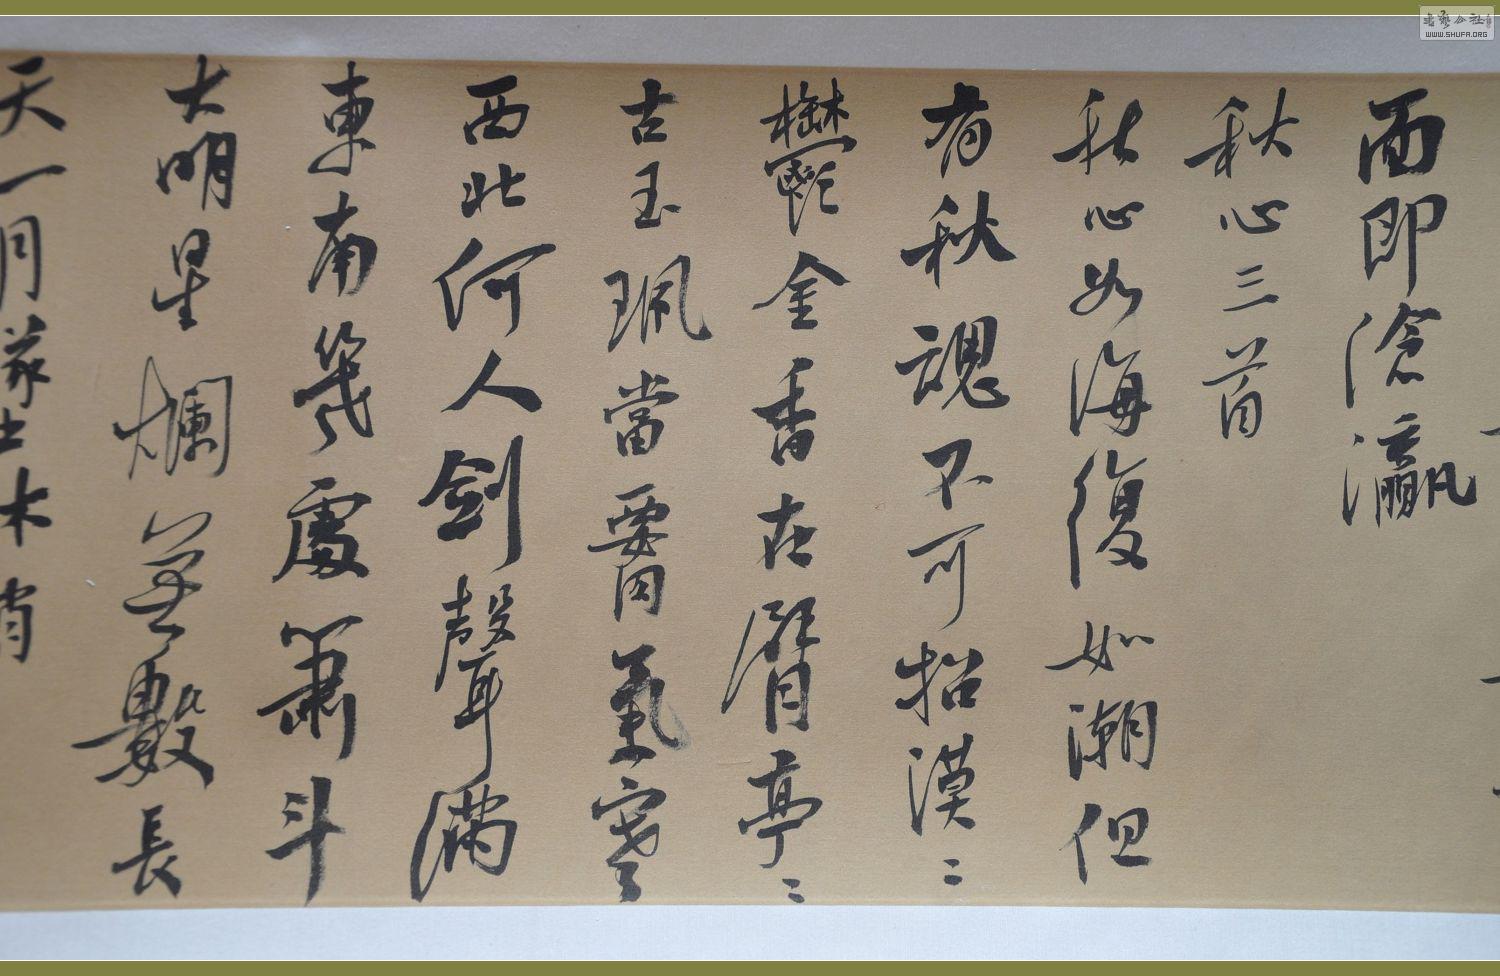 面即滄瀛
秋心三首
秋心如海復如潮但
有秋魂不可招漠〻
鬱金香在臂亭〻
古玉珮當腰氣寒
西北何人劍聲滿
東南幾處簫斗
大明星爛無數長
天一月墜林梢
WWW.SHUFA.ORG